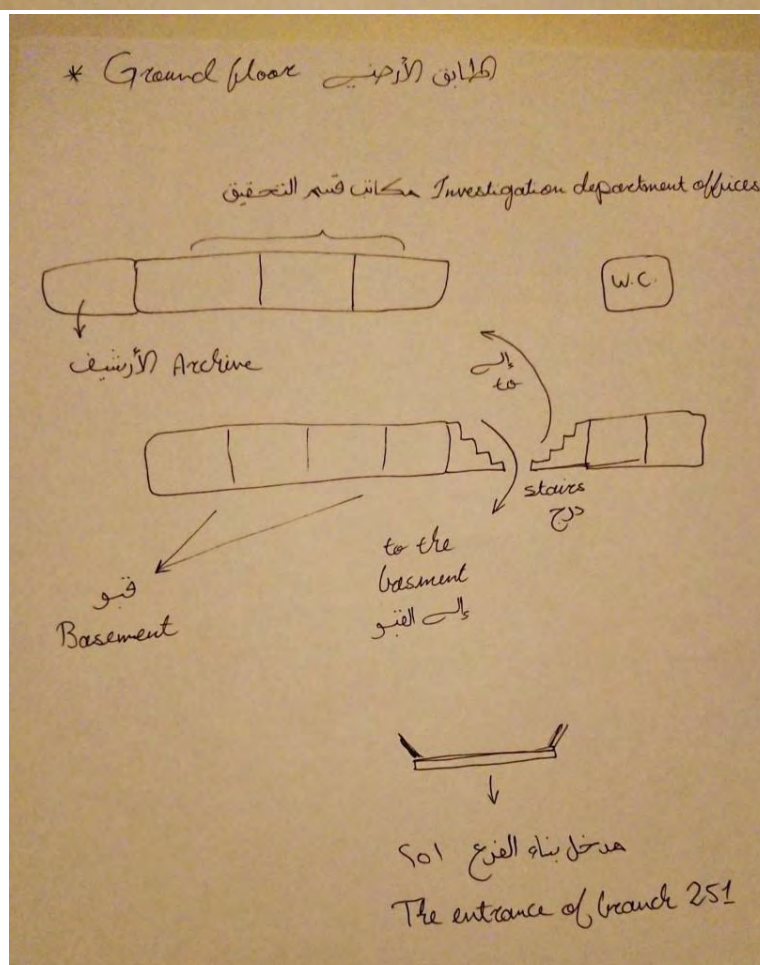 * Ground floor الطابق الأرضي
مكاتب قسم التحقيق Investigation department offices
W.C.
الأرشيف Archive
إلى
to
stairs
درج
to the
basment
إلى القبو
قبو
Basement
مدخل بناء الفرع ٢٥١
The entrance of branch 251